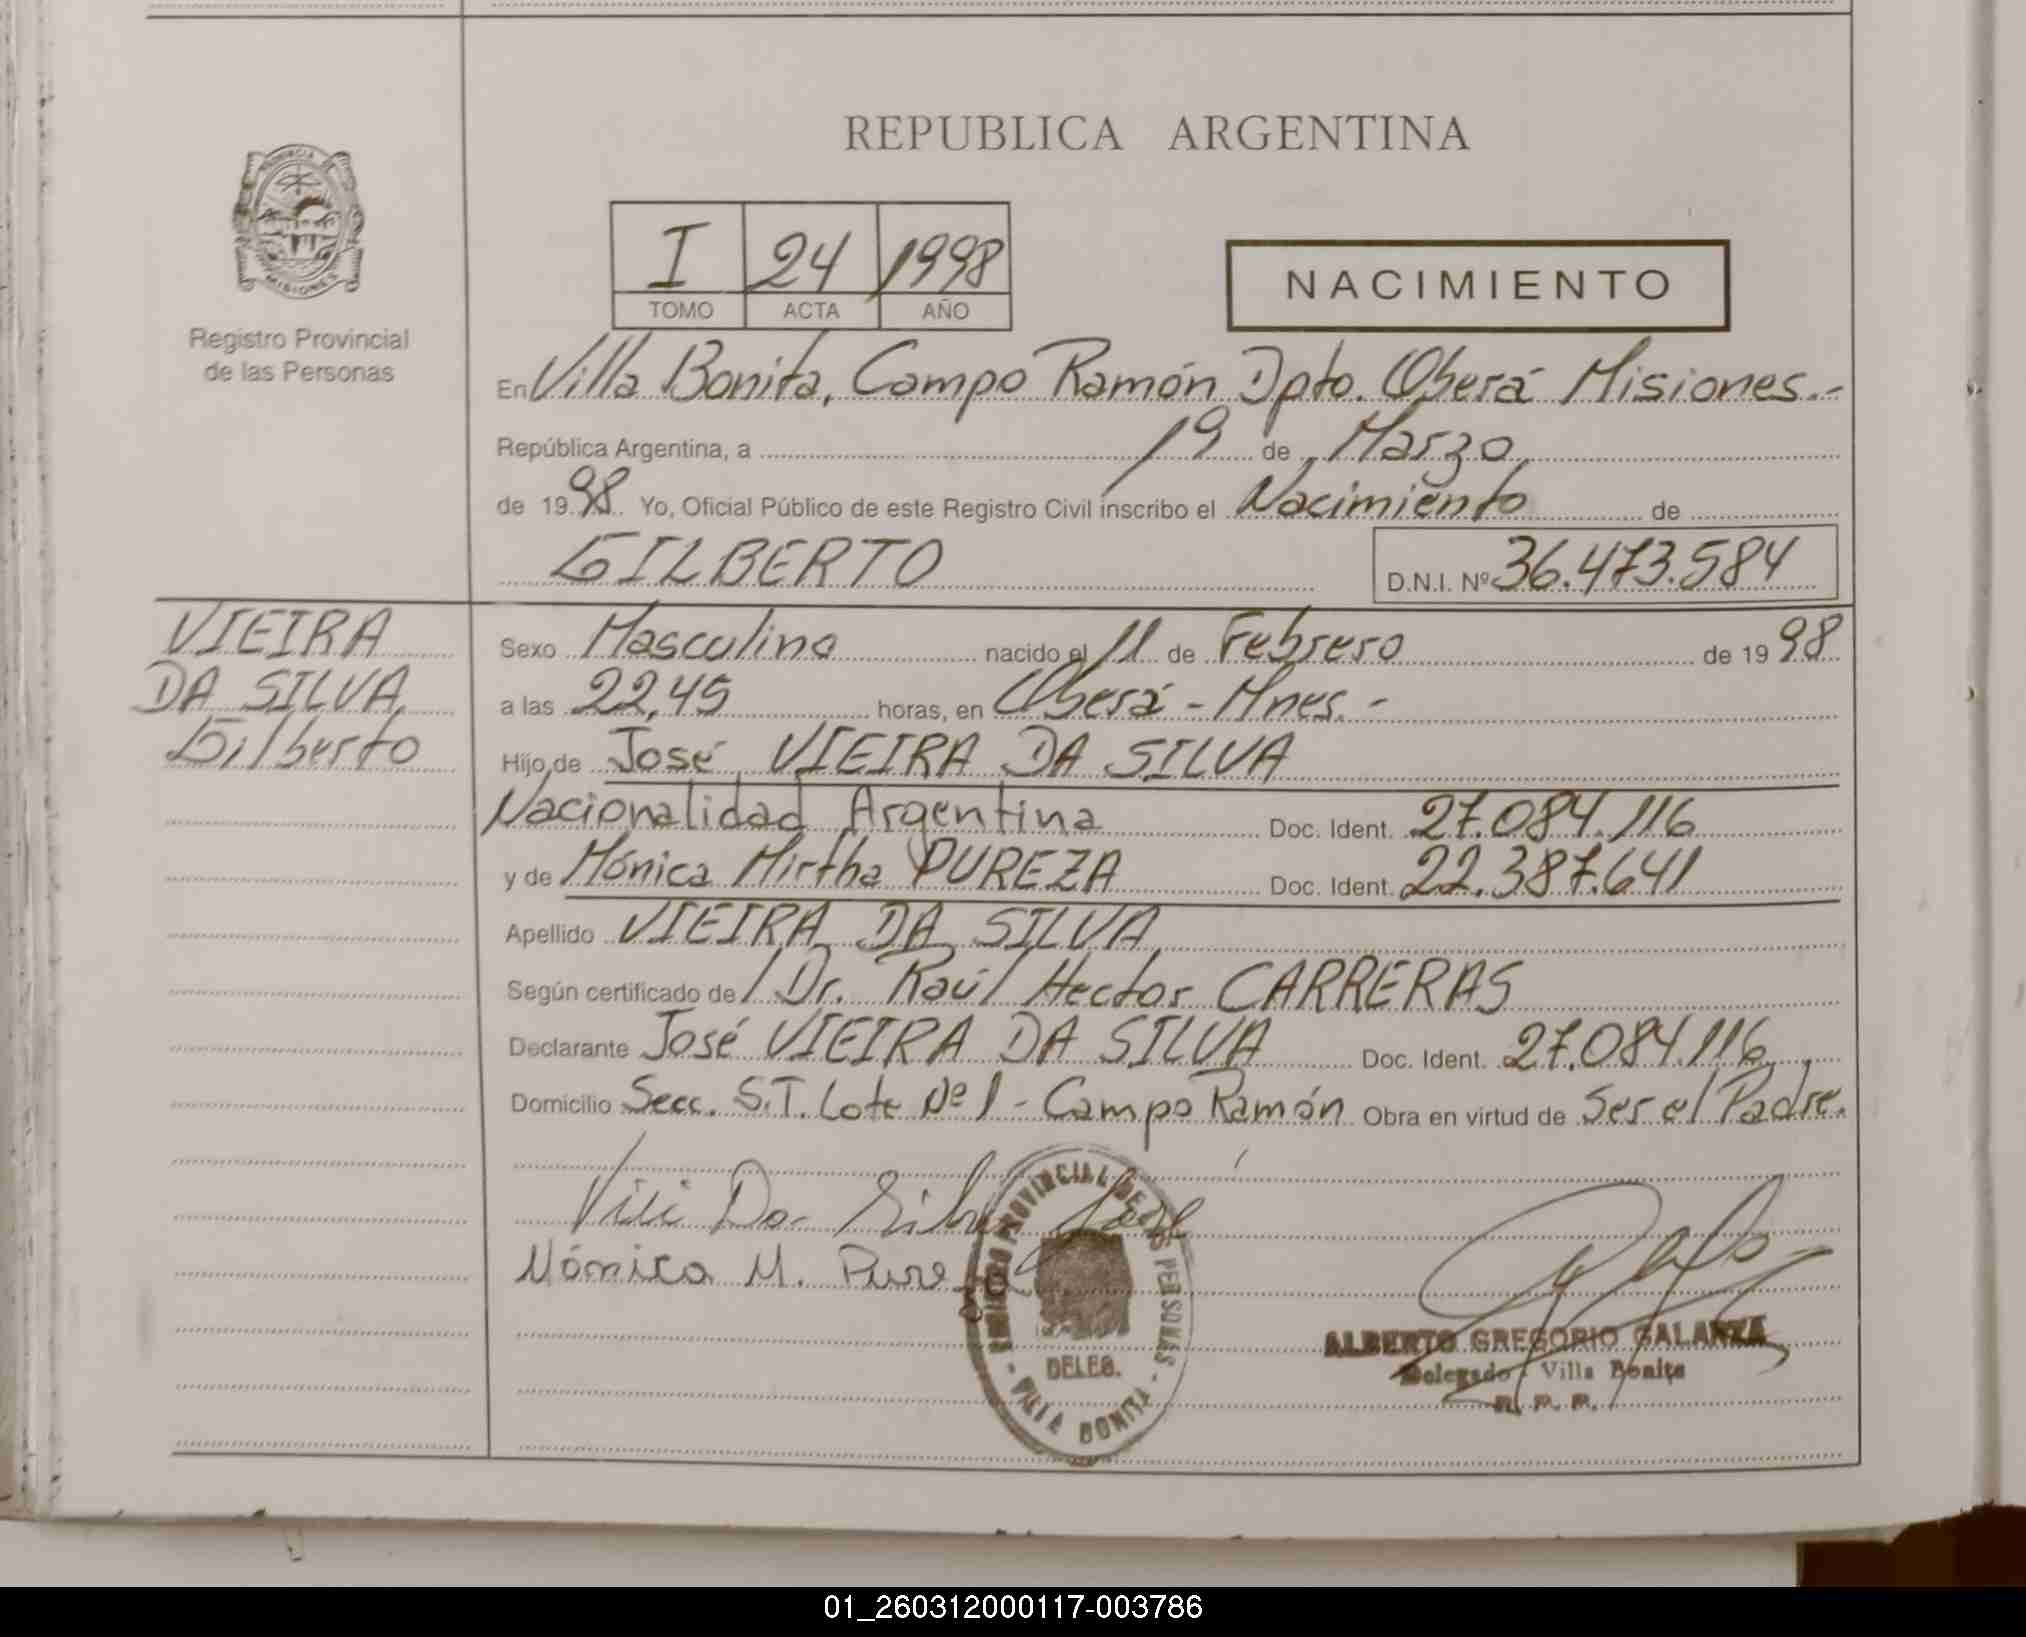 REPUBLICA ARGENTINA
PROVINCIA DE
MISIONES
Registro Provincial
de las Personas
I 24 1998
TOMO ACTA AÑO
NACIMIENTO
En Villa Bonita, Campo Ramón Dpto. Oberá Misiones.-
República Argentina, a 19 de Marzo
de 1998 Yo, Oficial Público de este Registro Civil inscribo el Nacimiento de
GILBERTO D.N.I. Nº 36.473.584
VIEIRA
DA SILVA,
Gilberto
Sexo Masculino nacido el 11 de Febrero de 1998
a las 22,45 horas, en Oberá - Mnes. -
Hijo de José VIEIRA DA SILVA
Nacionalidad Argentina Doc. Ident. 27.084.116
y de Mónica Mirtha PUREZA Doc. Ident. 22.387.641
Apellido VIEIRA DA SILVA
Según certificado de / Dr. Raúl Hector CARRERAS
Declarante José VIEIRA DA SILVA Doc. Ident. 27.084.116
Domicilio Secc. S.T. Lote Nº 1 - Campo Ramón Obra en virtud de Ser el Padre.
Da Silva José
Mónica M. Pure
PROVINCIAL DE LAS PERSONAS
DELEG.
- VILLA BONITA -
ALBERTO GREGORIO GALARZA
Delegado - Villa Bonita
R. P. P.
01_260312000117-003786